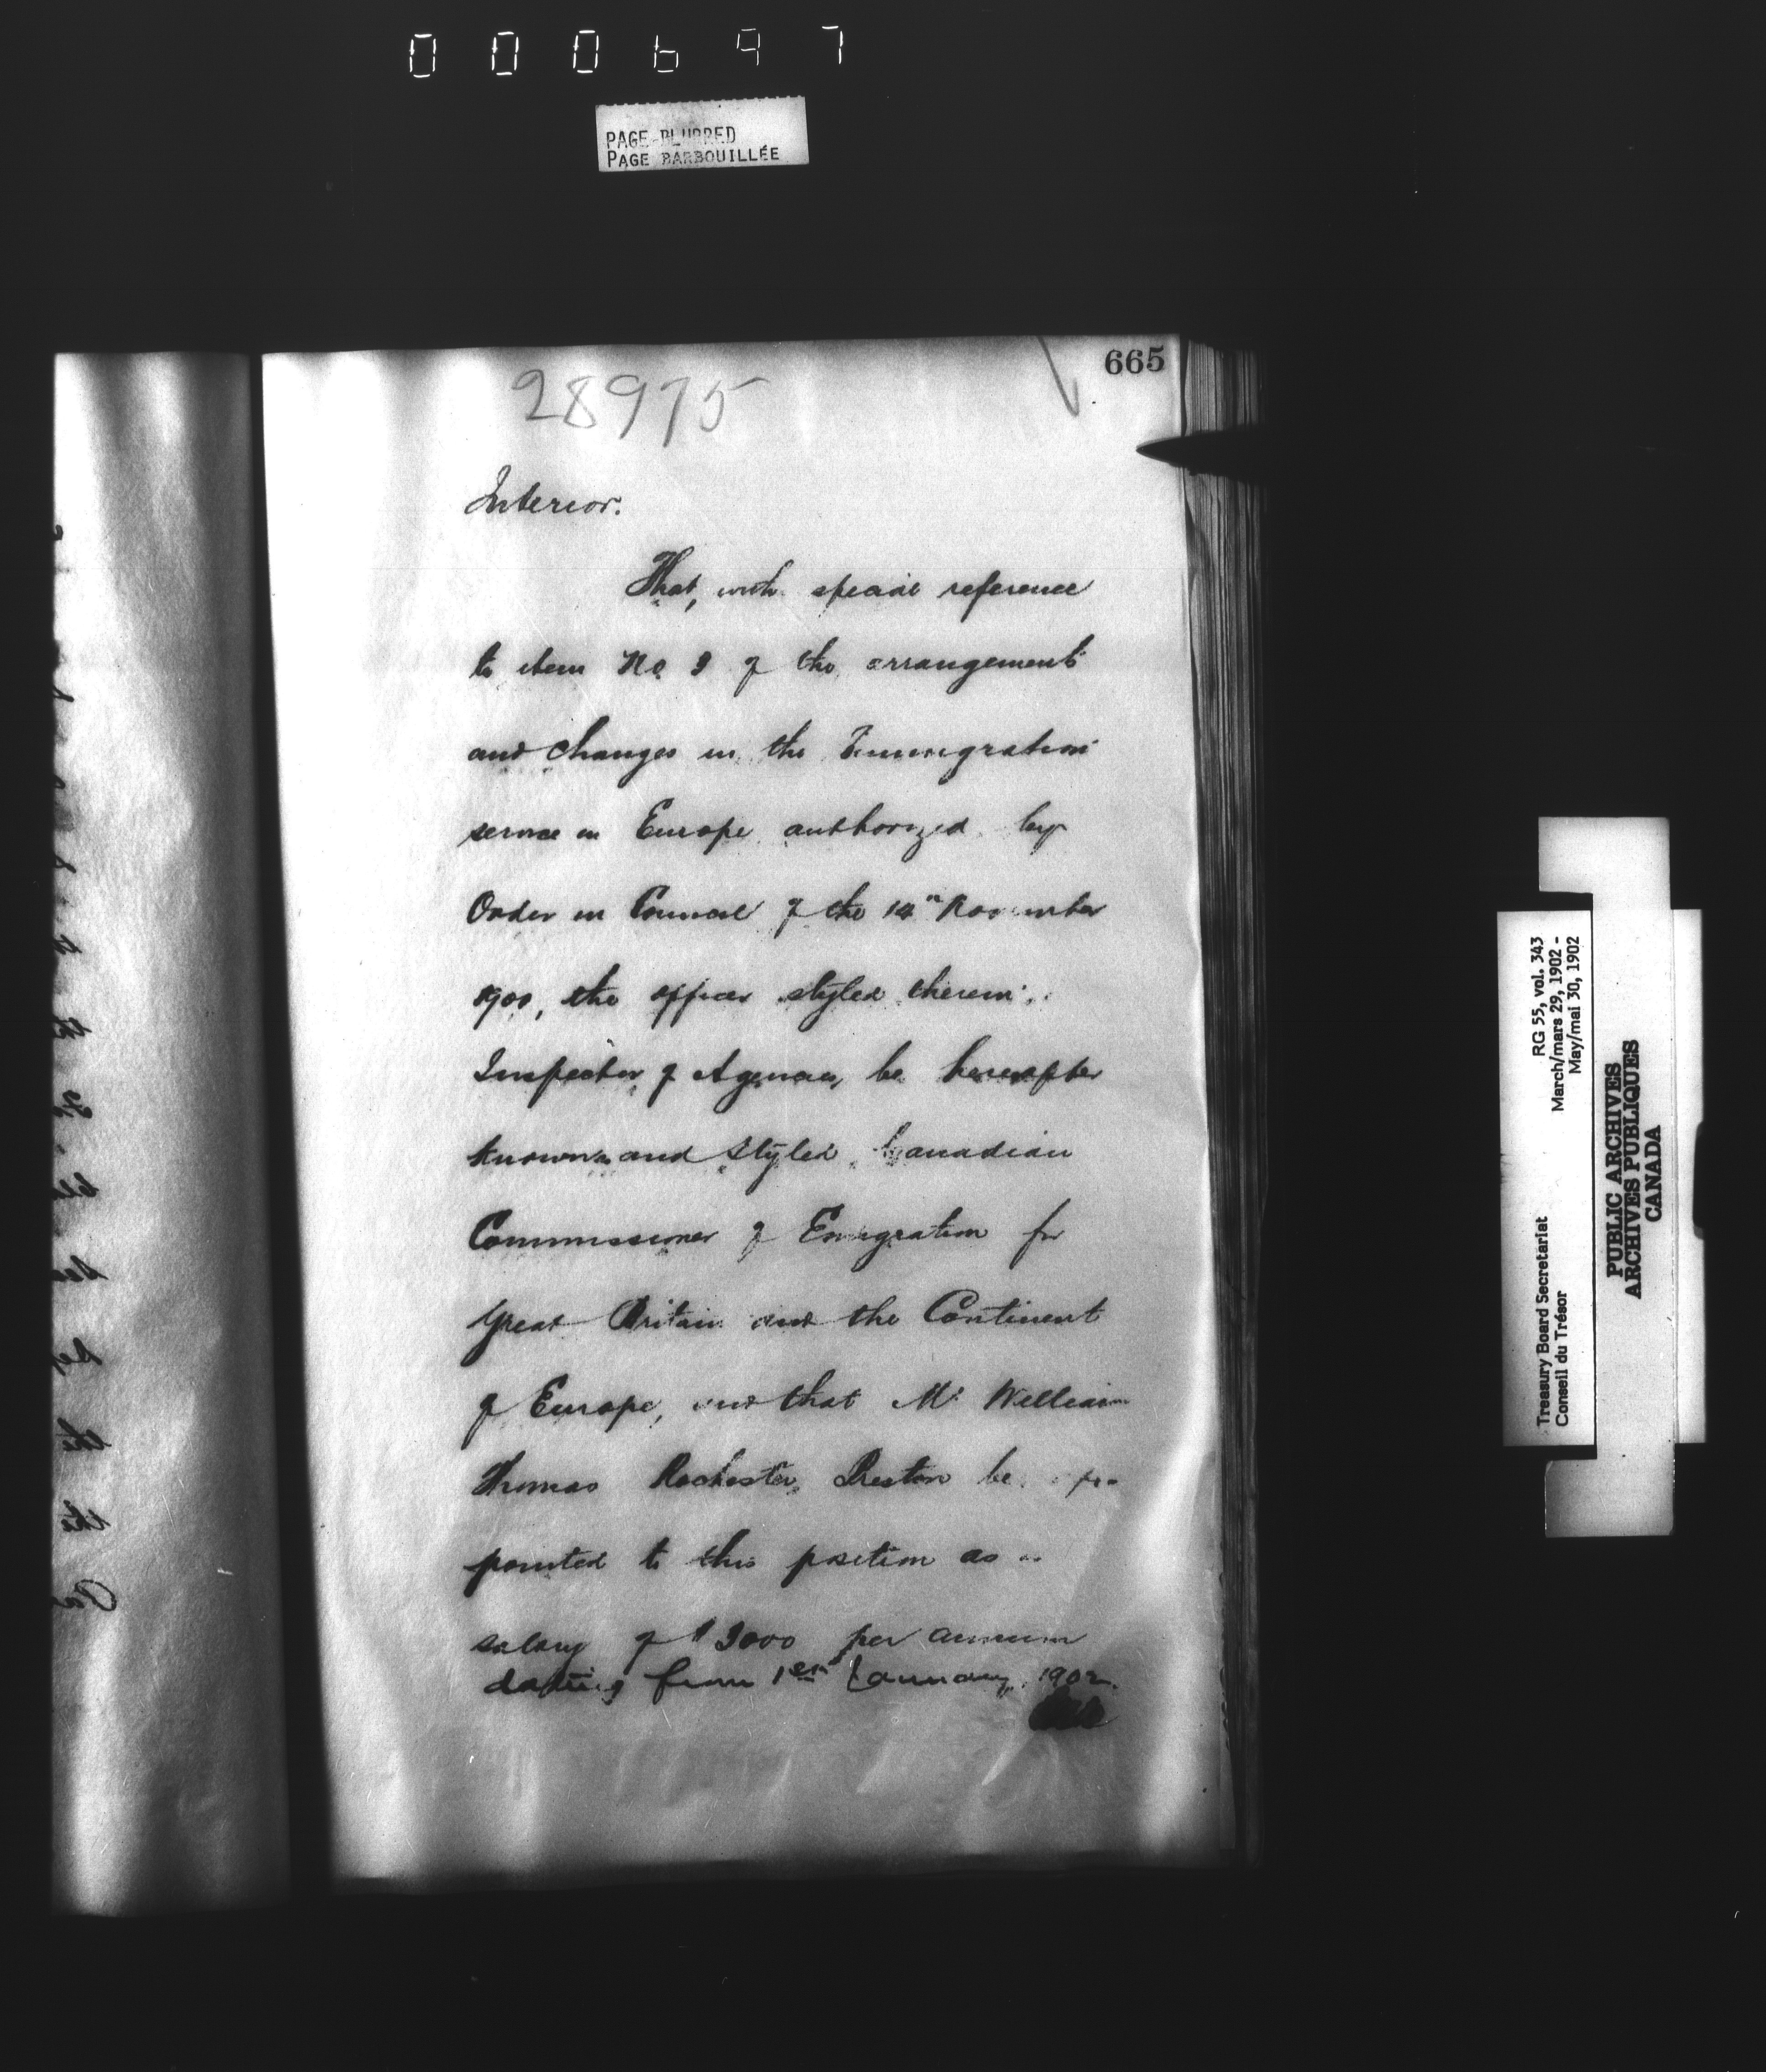 000697
PAGE BLURRED
PAGE BARBOUILLÉE
665
28975
Interior.
That, with special reference
to item No 3 of the arrangement
and changes in the Immigration
service in Europe authorized by
Order in Council of the 14th November
1900, the officer styled therein
Inspector of Agencies, be hereafter
known and styled Canadian
Commissioner of Emigration for
Great Britain and the Continent
of Europe, and that Mr William
Thomas Rochester Preston be ap-
pointed to this position as a
salary of $3000 per annum
dating from 1st January, 1902.
Treasury Board Secretariat RG 55, vol. 343
Conseil du Trésor March/mars 29, 1902 -
May/mai 30, 1902
PUBLIC ARCHIVES
ARCHIVES PUBLIQUES
CANADA